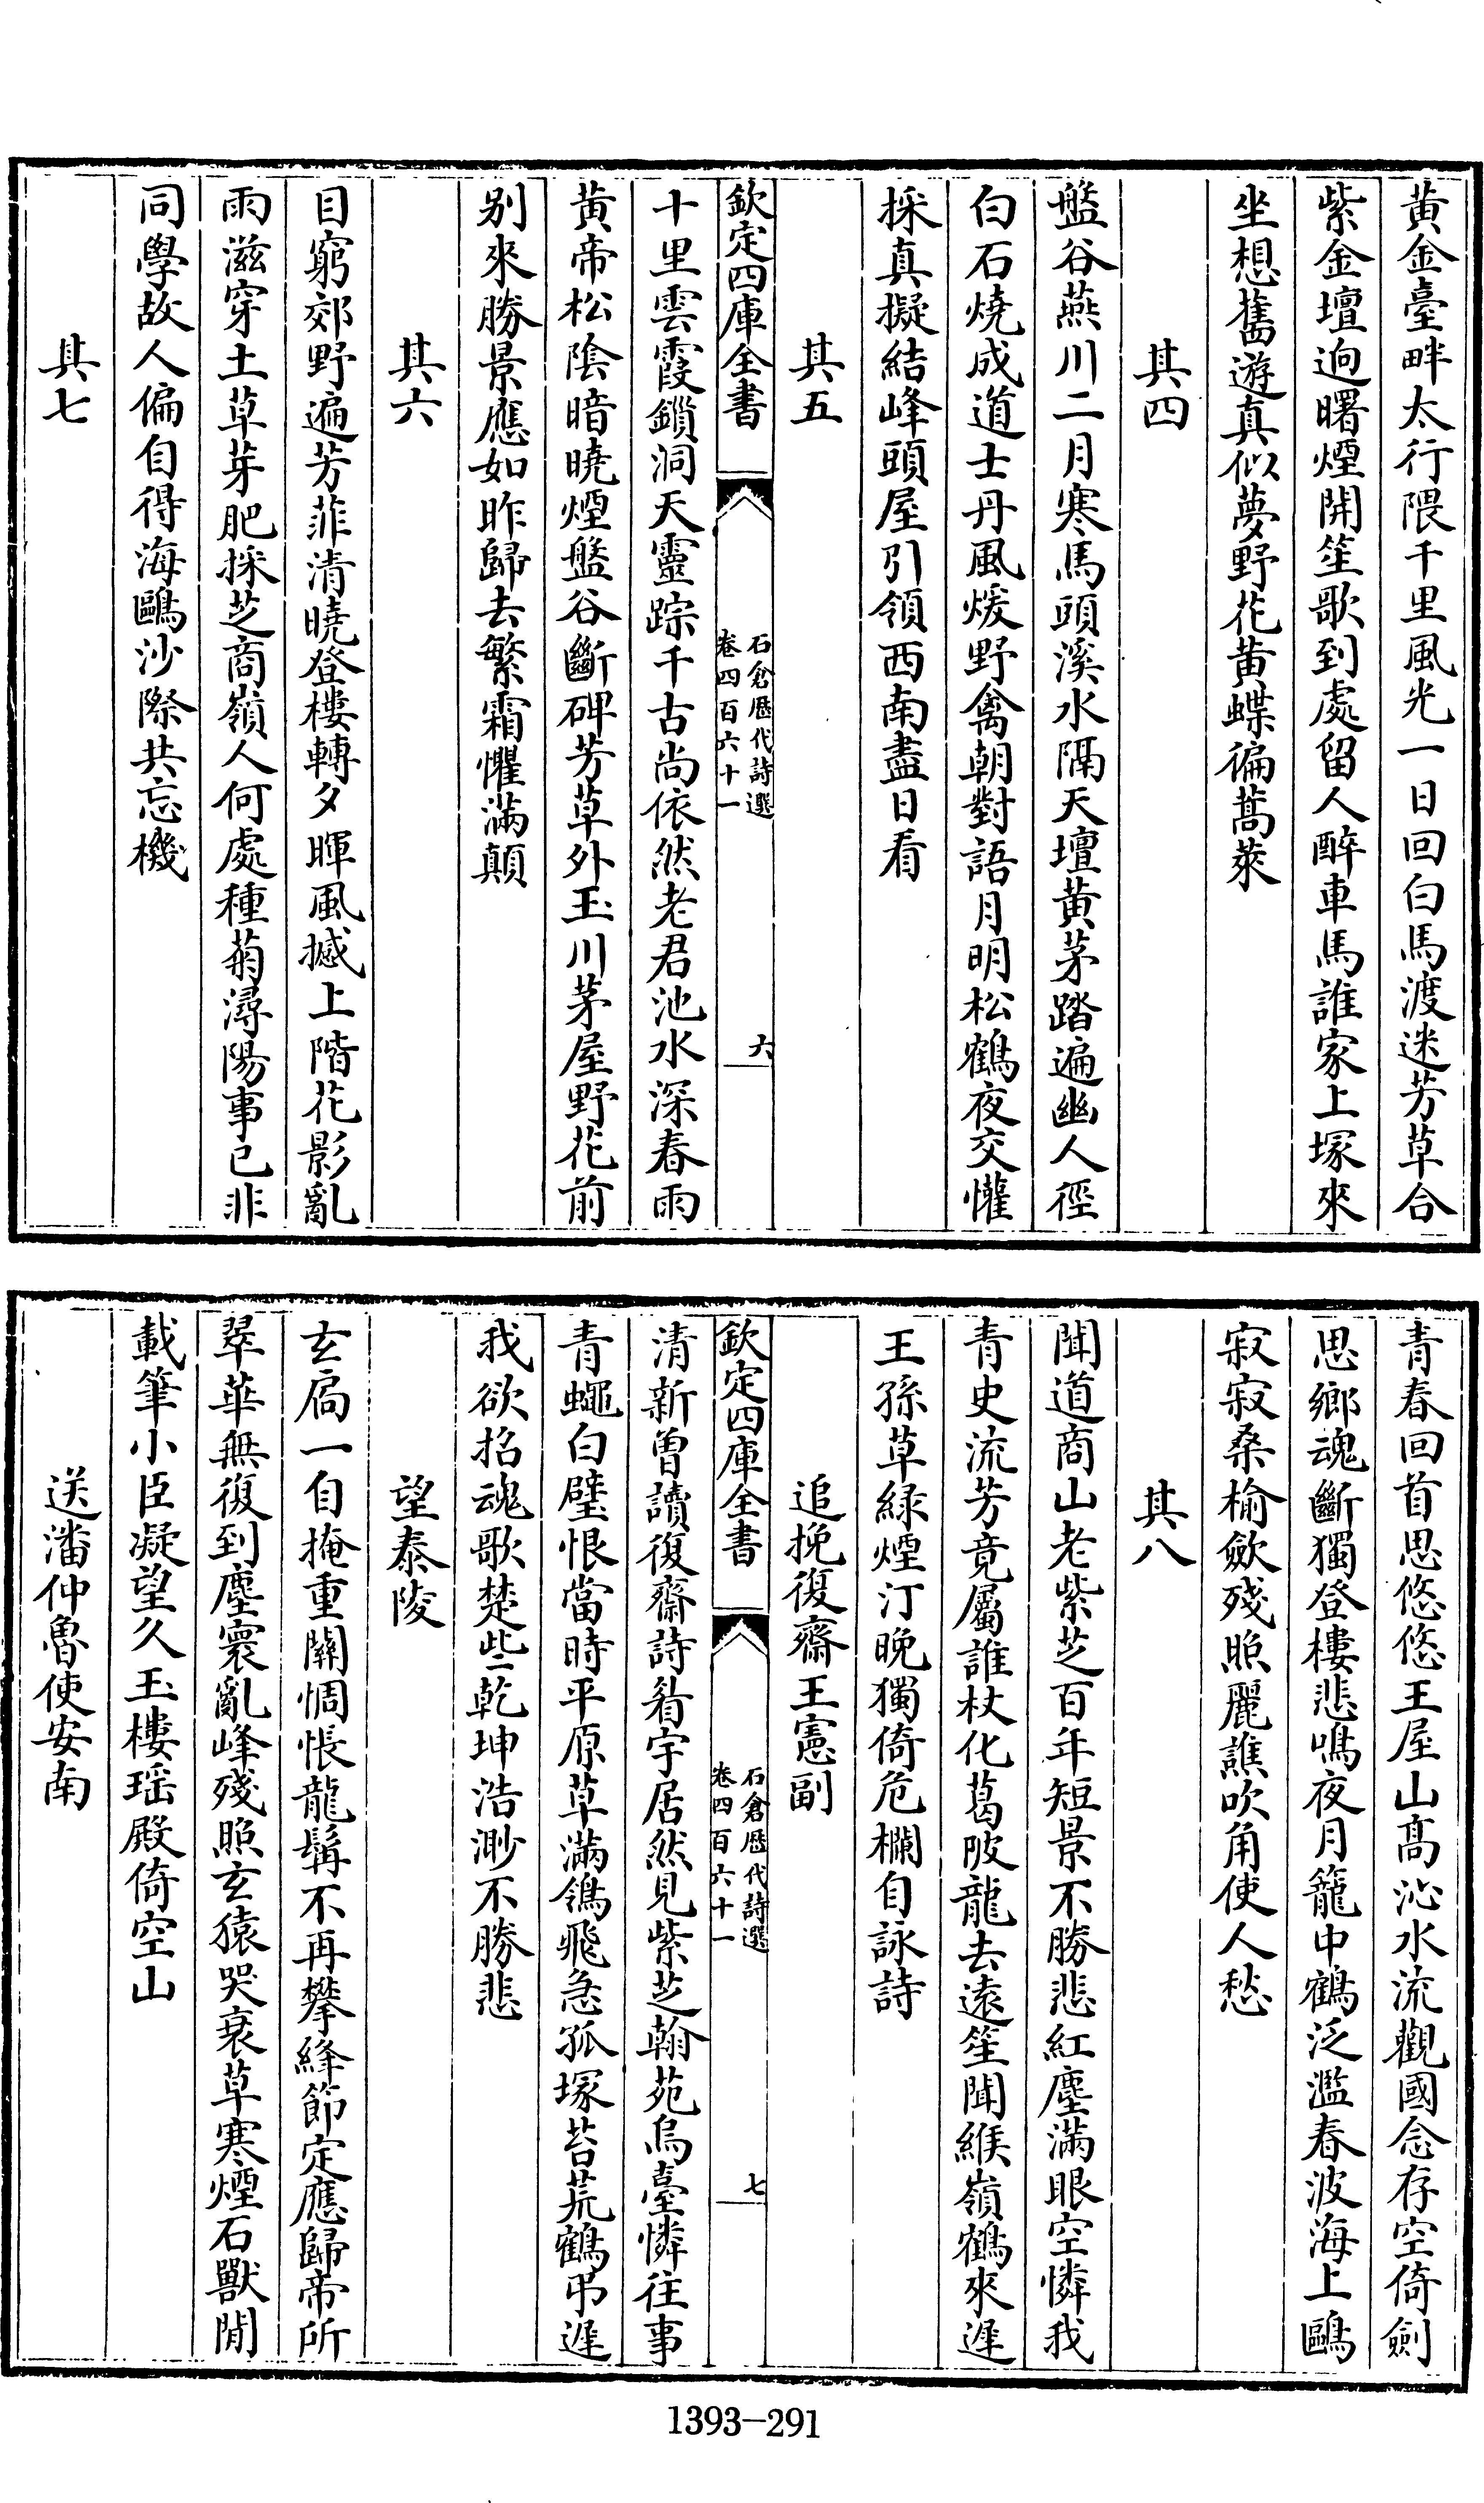 黄金臺畔太行隈千里風光一日回白馬渡迷芳草合
紫金壇逈曙煙開笙歌到處留人醉車馬誰家上塚來
坐想舊遊真似夢野花黄蝶徧蒿萊
其四
盤谷燕川二月寒馬頭溪水隔天壇黄茅踏遍幽人徑
白石燒成道士丹風煖野禽朝對語月明松鶴夜交懽
採真擬結峰頭屋引領西南盡日看
其五
欽定四庫全書
石倉歴代詩選
卷四百六十一
六
十里雲霞鎖洞天靈踪千古尚依然老君池水深春雨
黄帝松陰暗曉煙盤谷斷碑芳草外玉川茅屋野花前
别來勝景應如昨歸去繁霜懼滿顛
其六
目窮郊野遍芳菲清曉登樓轉夕暉風撼上階花影亂
雨滋穿土草芽肥採芝商嶺人何處種菊潯陽事已非
同學故人偏自得海鷗沙際共忘機
其七
青春回首思悠悠王屋山髙沁水流觀國念存空倚劍
思鄉魂斷獨登樓悲鳴夜月籠中鶴泛濫春波海上鷗
寂寂桑榆歛殘照麗譙吹角使人愁
其八
聞道商山老紫芝百年短景不勝悲紅塵滿眼空憐我
青史流芳竟屬誰杖化葛陂龍去遠笙聞緱嶺鶴來遲
王孫草緑煙汀晩獨倚危欄自詠詩
追挽復齋王憲副
欽定四庫全書
石倉歴代詩選
卷四百六十一
七
清新曽讀復齋詩眉宇居然見紫芝翰苑烏臺憐往事
青蠅白璧恨當時平原草滿鴒飛急孤塚苔荒鶴弔遲
我欲招魂歌楚些乾坤浩渺不勝悲
望泰陵
玄扃一自掩重闗惆悵龍髯不再攀絳節定應歸帝所
翠華無復到塵寰亂峰殘照玄猿哭衰草寒煙石獸閒
載筆小臣凝望久玉樓瑶殿倚空山
送潘仲魯使安南
1393-291